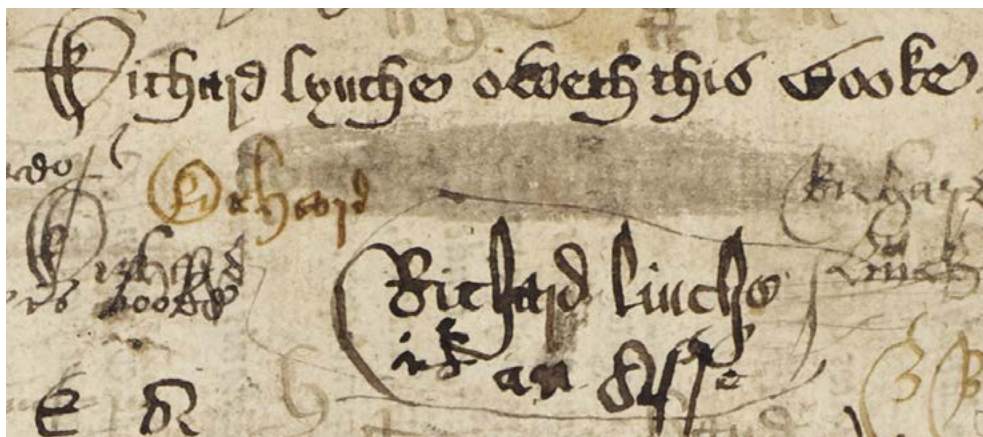 Richard lynche oweth this booke
Richard
Richard
Richard
booke
Richard linche
is an Asse